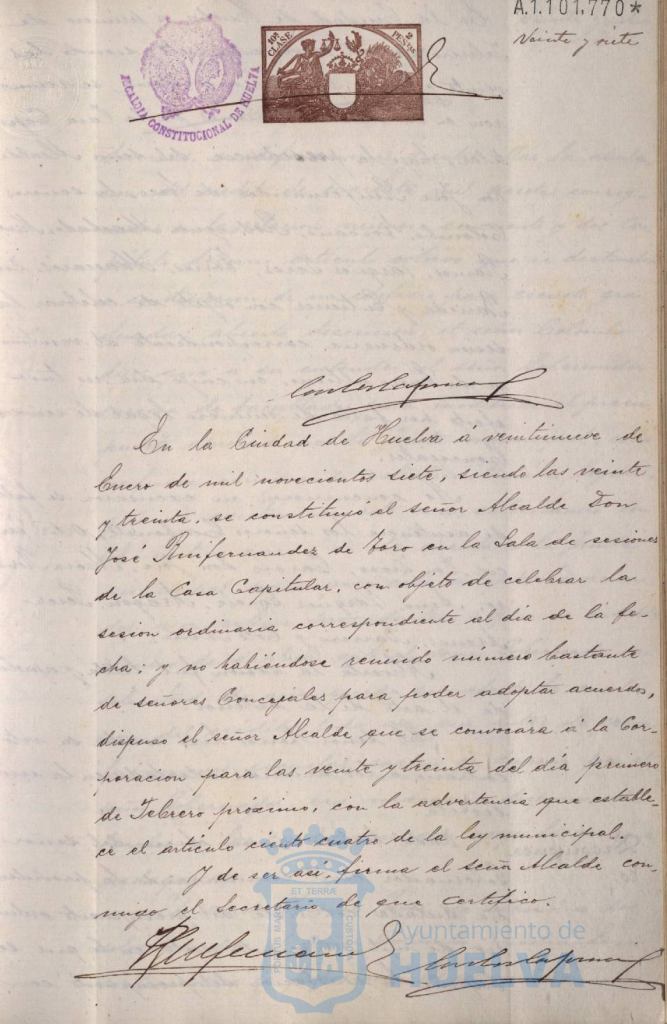 A.1.101.770*
Veinte y siete
ALCALDIA CONSTITUCIONAL DE HUELVA
10ª CLASE
2 PESETAS
En la Ciudad de Huelva á veintinueve de
Enero de mil novecientos siete, siendo las veinte
y treinta, se constituyó el señor Alcalde Don
José Ruifernandez de Toro en la Sala de sesiones
de la Casa Capitular, con objeto de celebrar la
sesion ordinaria correspondiente al dia de la fe-
cha; y no habiéndose reunido número bastante
de señores Concejales para poder adoptar acuerdos,
dispuso el señor Alcalde que se convocára á la Cor-
poracion para las veinte y treinta del día primero
de Febrero próximo, con la advertencia que estable-
ce el artículo ciento cuatro de la ley municipal.
Y de ser así, firma el señor Alcalde con-
migo el Secretario de que certifico.
Ayuntamiento de
HUELVA
ET TERRÆ
PORTUS MARIS
CUSTODIA